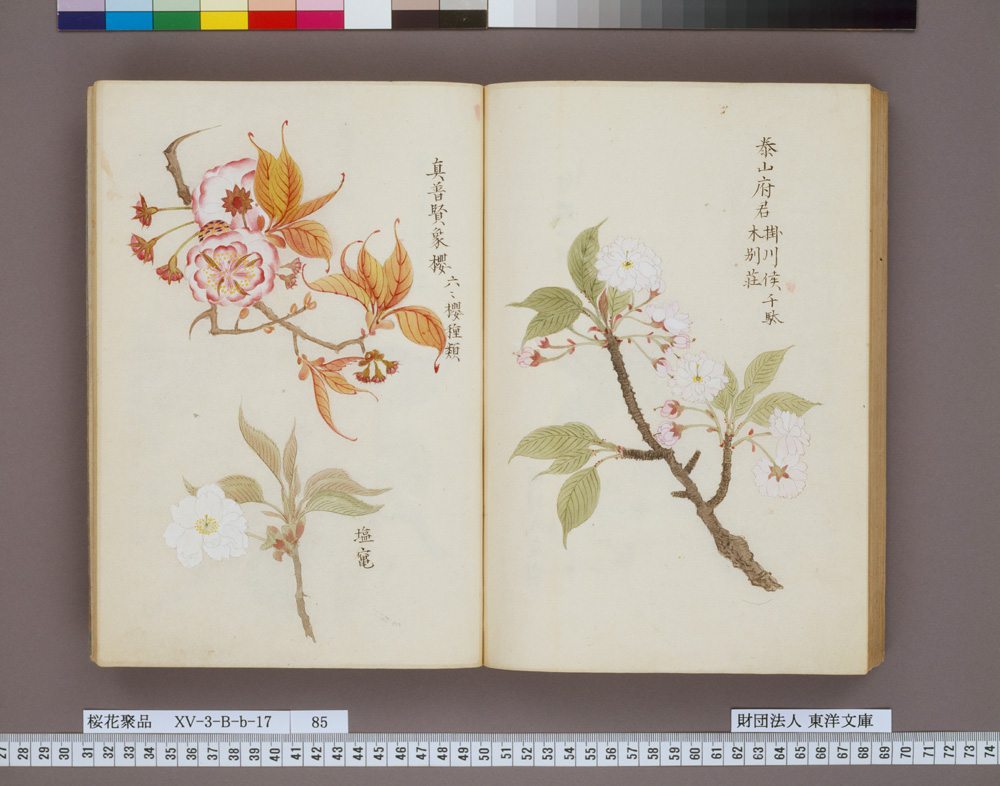 泰山府君
掛川侯千駄
木別荘
真普賢象櫻
六ミ櫻種類
塩竈
桜花聚品 XV-3-B-b-17 85
財団法人 東洋文庫
27 28 29 30 31 32 33 34 35 36 37 38 39 40 41 42 43 44 45 46 47 48 49 50 51 52 53 54 55 56 57 58 59 60 61 62 63 64 65 66 67 68 69 70 71 72 73 74